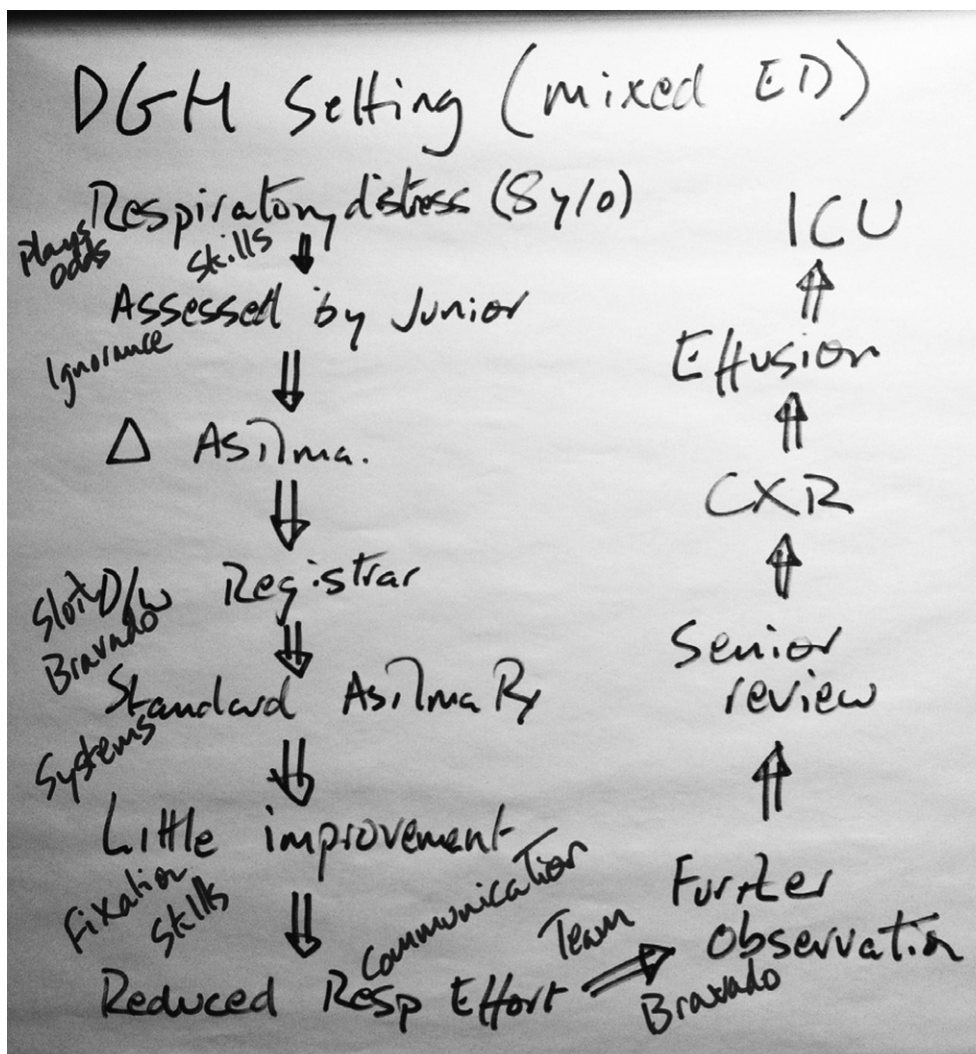 DGH Setting (mixed ED)
Respiratory distress (8 y/o)
Plays odds
Skills
Assessed by Junior
Ignorance
Δ Asthma.
D/w Registrar
Sloth
Bravado
Standard Asthma Rx
Systems
Little improvement
Fixation
Skills
Communication
Reduced Resp Effort
Team
Bravado
Further
Observation
Senior
review
CXR
Effusion
ICU